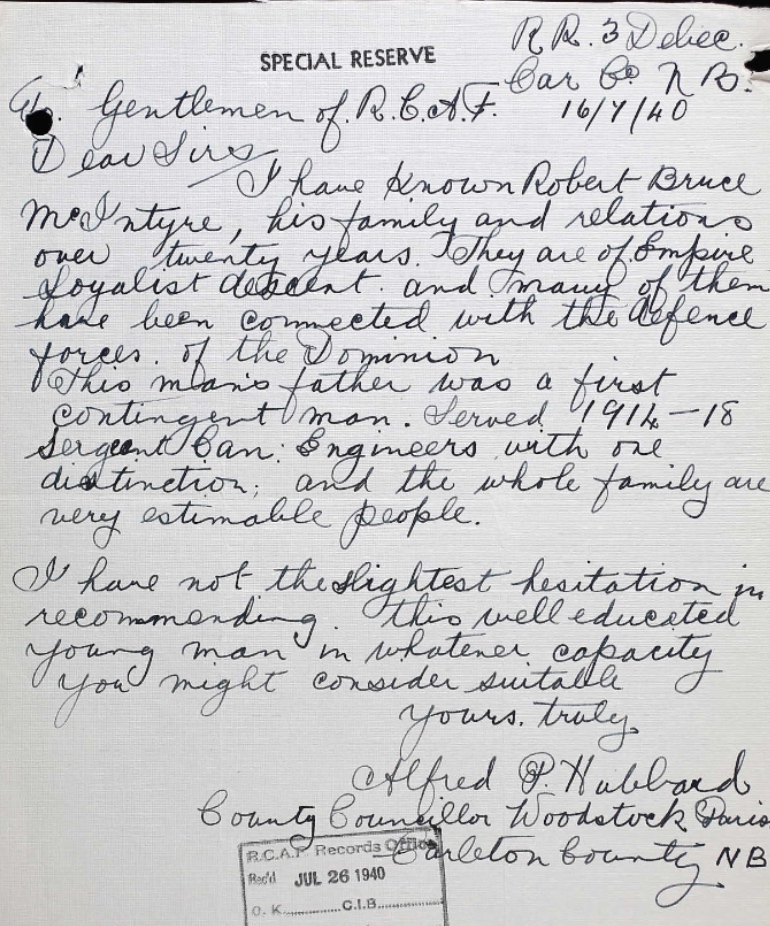 SPECIAL RESERVE
R R. 3 Debec.
Car Co N B.
16/7/40
To. Gentlemen of R.C.A.F.
Dear Sirs
I have known Robert Bruce
McIntyre, his family and relations
over twenty years. They are of Empire
Loyalist descent. and many of them
have been connected with the defence
forces. of the Dominion
This man's father was a first
contingent man. Served 1914-18
Sergeant Can. Engineers with one
distinction; and the whole family are
very estimable people.
I have not the slightest hesitation in
recommending. this well educated
young man in whatever capacity
you might consider suitable
Yours. truly
Alfred P. Hubbard
County Councillor Woodstock Paris
Carleton County NB
R.C.A.F. Records Office
Rec'd JUL 26 1940
O. K. ............ C.I.B. ............